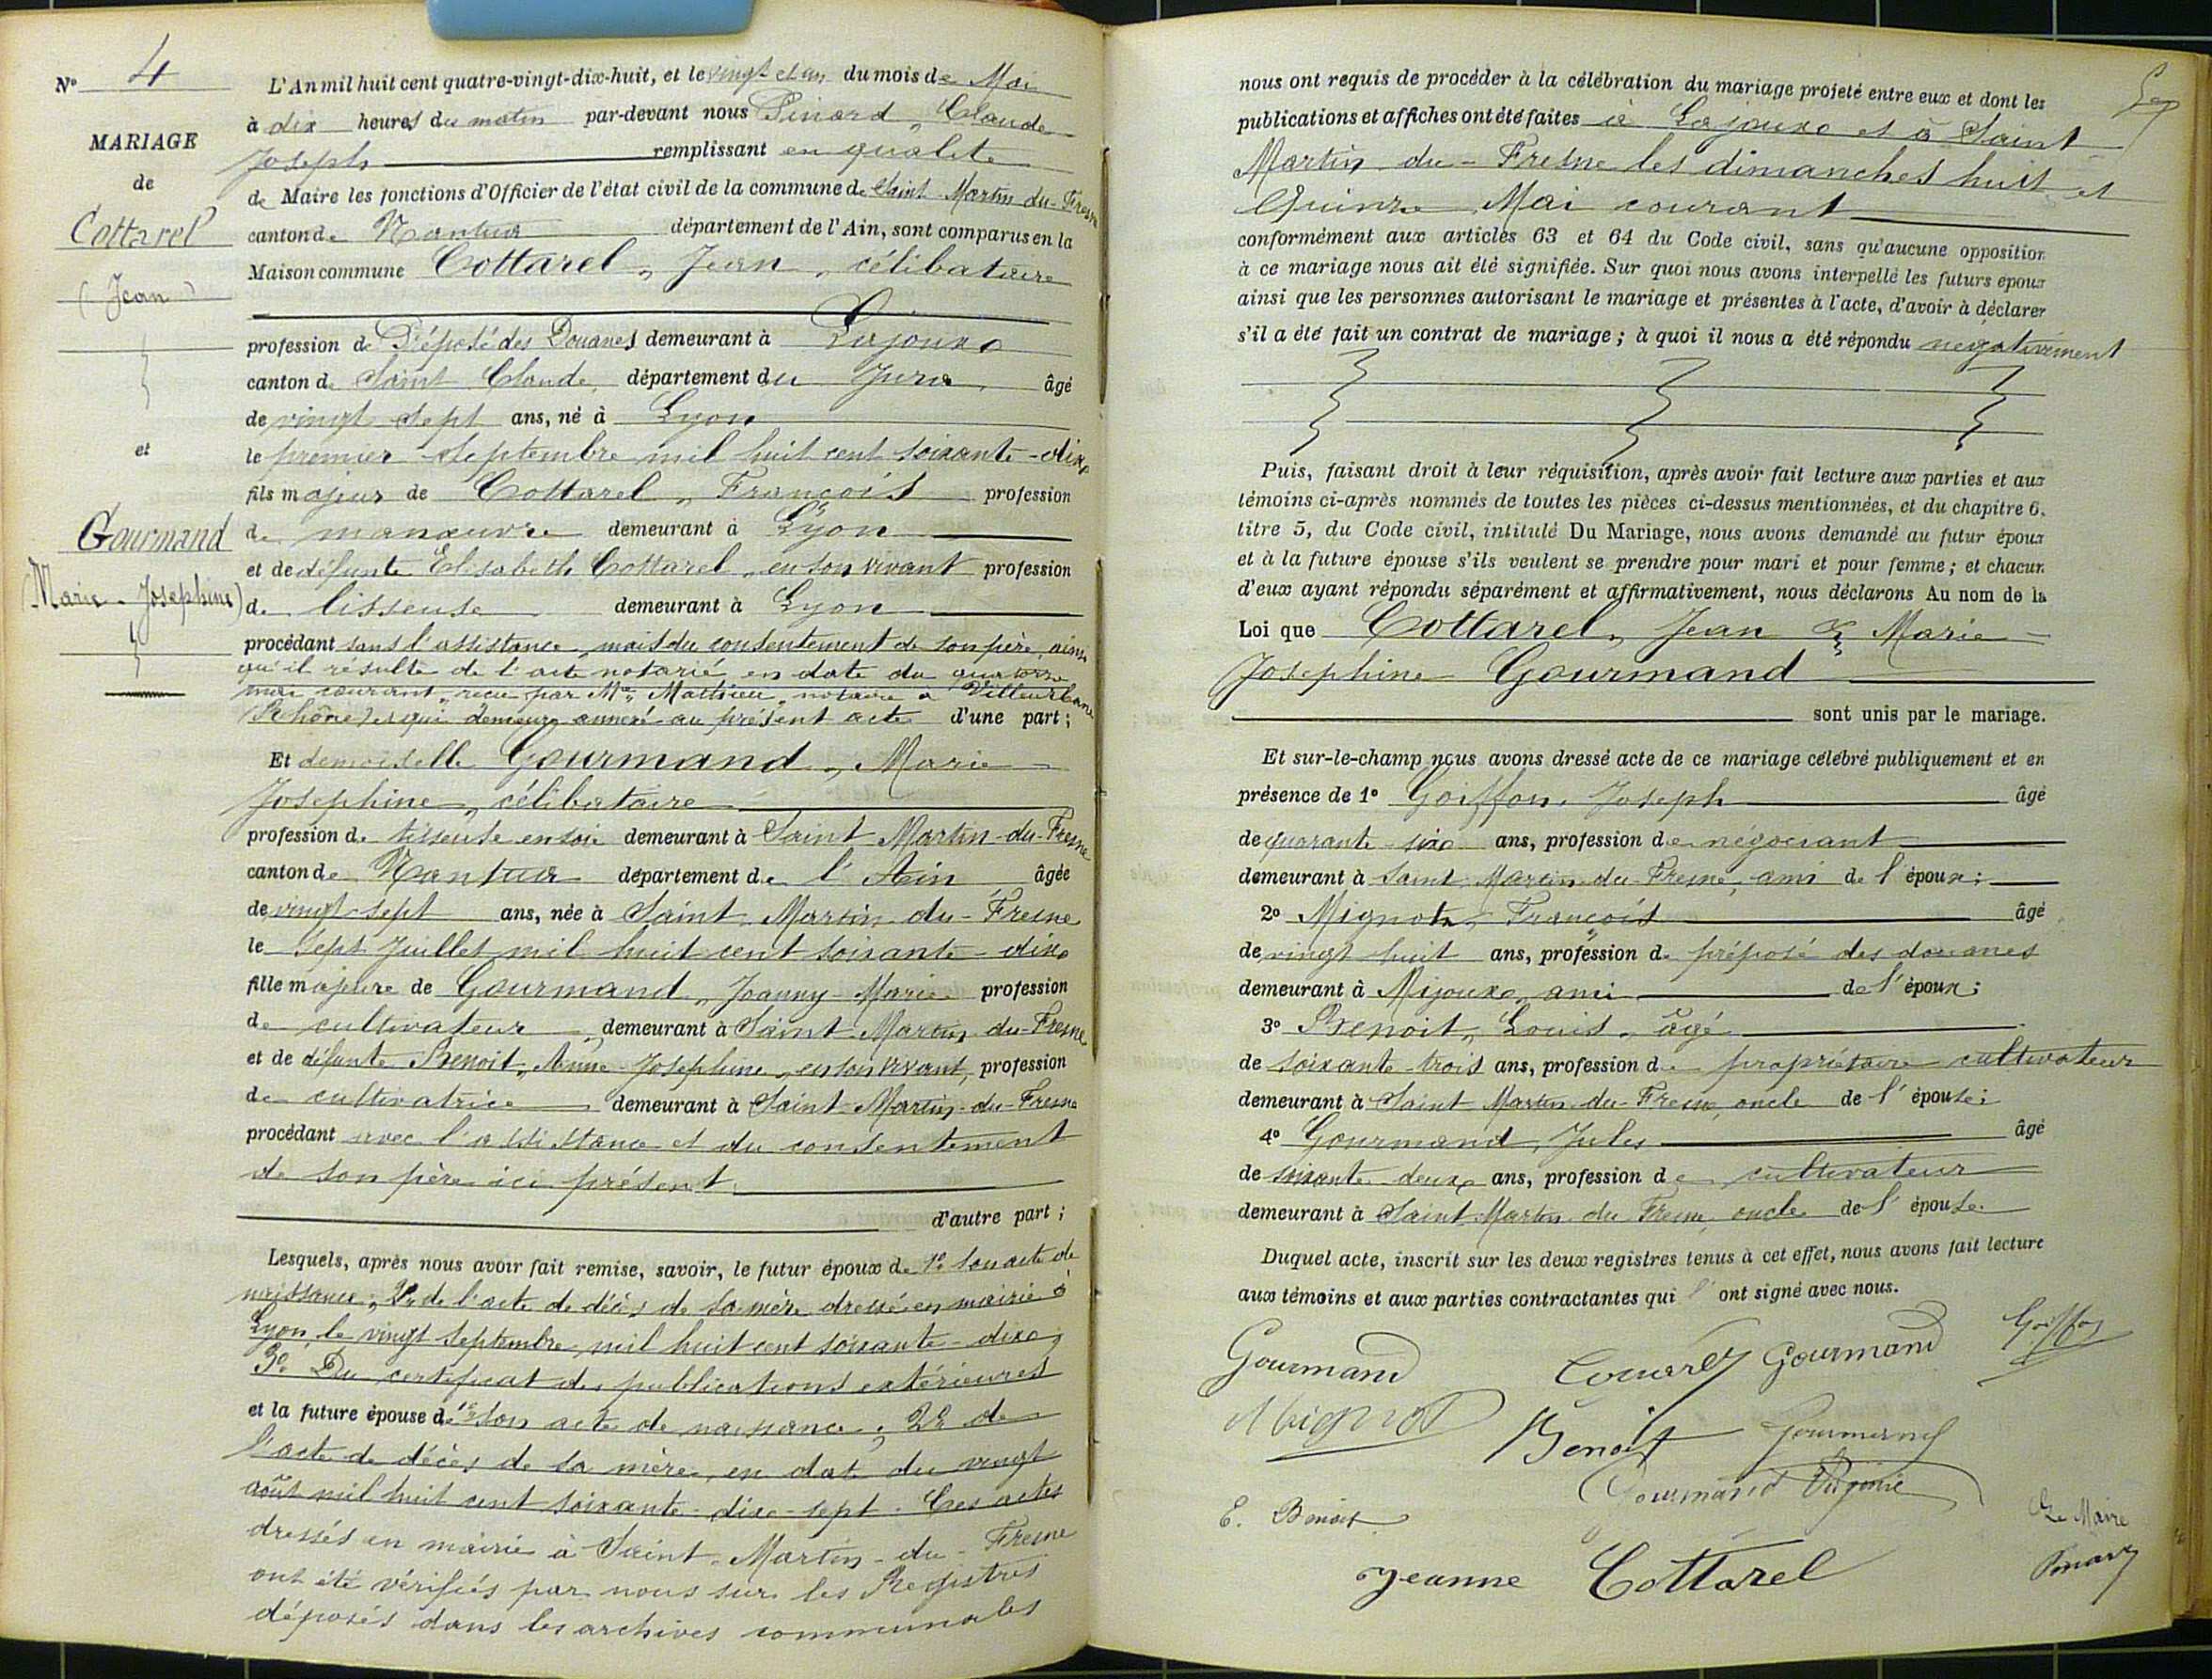 N° 4
MARIAGE
de
Cottarel
(Jean)
et
Gourmand
(Marie-Josephine)
L'An mil huit cent quatre-vingt-dix-huit, et le vingt et un du mois de Mai
à dix heures du matin par-devant nous Pinard, Claude
Joseph remplissant en qualité
de Maire les fonctions d'Officier de l'état civil de la commune de Saint-Martin-du-Fresne
canton de Nantua département de l'Ain, sont comparus en la
Maison commune Cottarel, Jean, célibataire
profession de Préposé des Douanes demeurant à Lajoux
canton de Saint Claude, département du Jura, âgé
de vingt sept ans, né à Lyon
le premier septembre mil huit cent soixante-dix
fils majeur de Cottarel, François profession
de manœuvre demeurant à Lyon
et de défunte Elisabeth Cottarel, en son vivant profession
de lisseuse demeurant à Lyon
procédant sans l'assistance, mais du consentement de son père, ainsi
qu'il résulte de l'acte notarié, en date du quatorze
mai courant, reçu par Me Mathieu, notaire à Villeurbane
(Rhône) et qui demeure annexé au présent acte d'une part ;
Et demoiselle Gourmand, Marie
Josephine, célibataire
profession de tisseuse en soie demeurant à Saint-Martin-du-Fresne
canton de Nantua département de l'Ain âgée
de vingt-sept ans, née à Saint-Martin-du-Fresne
le sept Juillet mil huit cent soixante-dix
fille majeure de Gourmand, Joanny-Marie profession
de cultivateur demeurant à Saint-Martin-du-Fresne
et de défunte Benoit, Anne Josephine, en son vivant, profession
de cultivatrice demeurant à Saint-Martin-du-Fresne
procédant avec l'assistance et du consentement
de son père ici présent
d'autre part ;
Lesquels, après nous avoir fait remise, savoir, le futur époux de 1° son acte de
naissance ; 2° de l'acte de décès de sa mère dressé en mairie à
Lyon, le vingt septembre mil huit cent soixante-dix ;
3° Du certificat des publications extérieures
et la future épouse de 1° son acte de naissance ; 2° de
l'acte de décès de sa mère, en date du vingt
août mil huit cent soixante-dix-sept. Ces actes
dressés en mairie à Saint-Martin-du-Fresne
ont été vérifiés par nous sur les Registres
déposés dans les archives communales
nous ont requis de procéder à la célébration du mariage projeté entre eux et dont les
publications et affiches ont été faites à Lajoux et à Saint
Martin-du-Fresne les dimanches huit et
Quinze Mai courant
conformément aux articles 63 et 64 du Code civil, sans qu'aucune opposition
à ce mariage nous ait été signifiée. Sur quoi nous avons interpellé les futurs epoux
ainsi que les personnes autorisant le mariage et présentes à l'acte, d'avoir à déclarer
s'il a été fait un contrat de mariage ; à quoi il nous a été répondu negativement
Puis, faisant droit à leur réquisition, après avoir fait lecture aux parties et aux
témoins ci-après nommés de toutes les pièces ci-dessus mentionnées, et du chapitre 6,
titre 5, du Code civil, intitulé Du Mariage, nous avons demandé au futur époux
et à la future épouse s'ils veulent se prendre pour mari et pour femme ; et chacun
d'eux ayant répondu séparément et affirmativement, nous déclarons Au nom de la
Loi que Cottarel, Jean & Marie
Josephine Gourmand
sont unis par le mariage.
Et sur-le-champ nous avons dressé acte de ce mariage célébré publiquement et en
présence de 1° Goiffon, Joseph âgé
de quarante-six ans, profession de négociant
demeurant à Saint-Martin-du-Fresne, ami de l'époux ;
2° Mignot, François âgé
de vingt huit ans, profession de préposé des douanes
demeurant à Mijoux, ami de l'époux ;
3° Benoit, Louis, âgé
de soixante-trois ans, profession de propriétaire cultivateur
demeurant à Saint-Martin-du-Fresne oncle de l'épouse ;
4° Gourmand, Jules âgé
de soixante-deux ans, profession de cultivateur
demeurant à Saint-Martin-du-Fresne oncle de l'épouse.
Duquel acte, inscrit sur les deux registres tenus à cet effet, nous avons fait lecture
aux témoins et aux parties contractantes qui l'ont signé avec nous.
Gourmand Gourmand Goiffon
Mignot Benoit Gourmand
Gourmand Virginie
E. Benoit Le Maire
Jeanne Cottarel Pinard